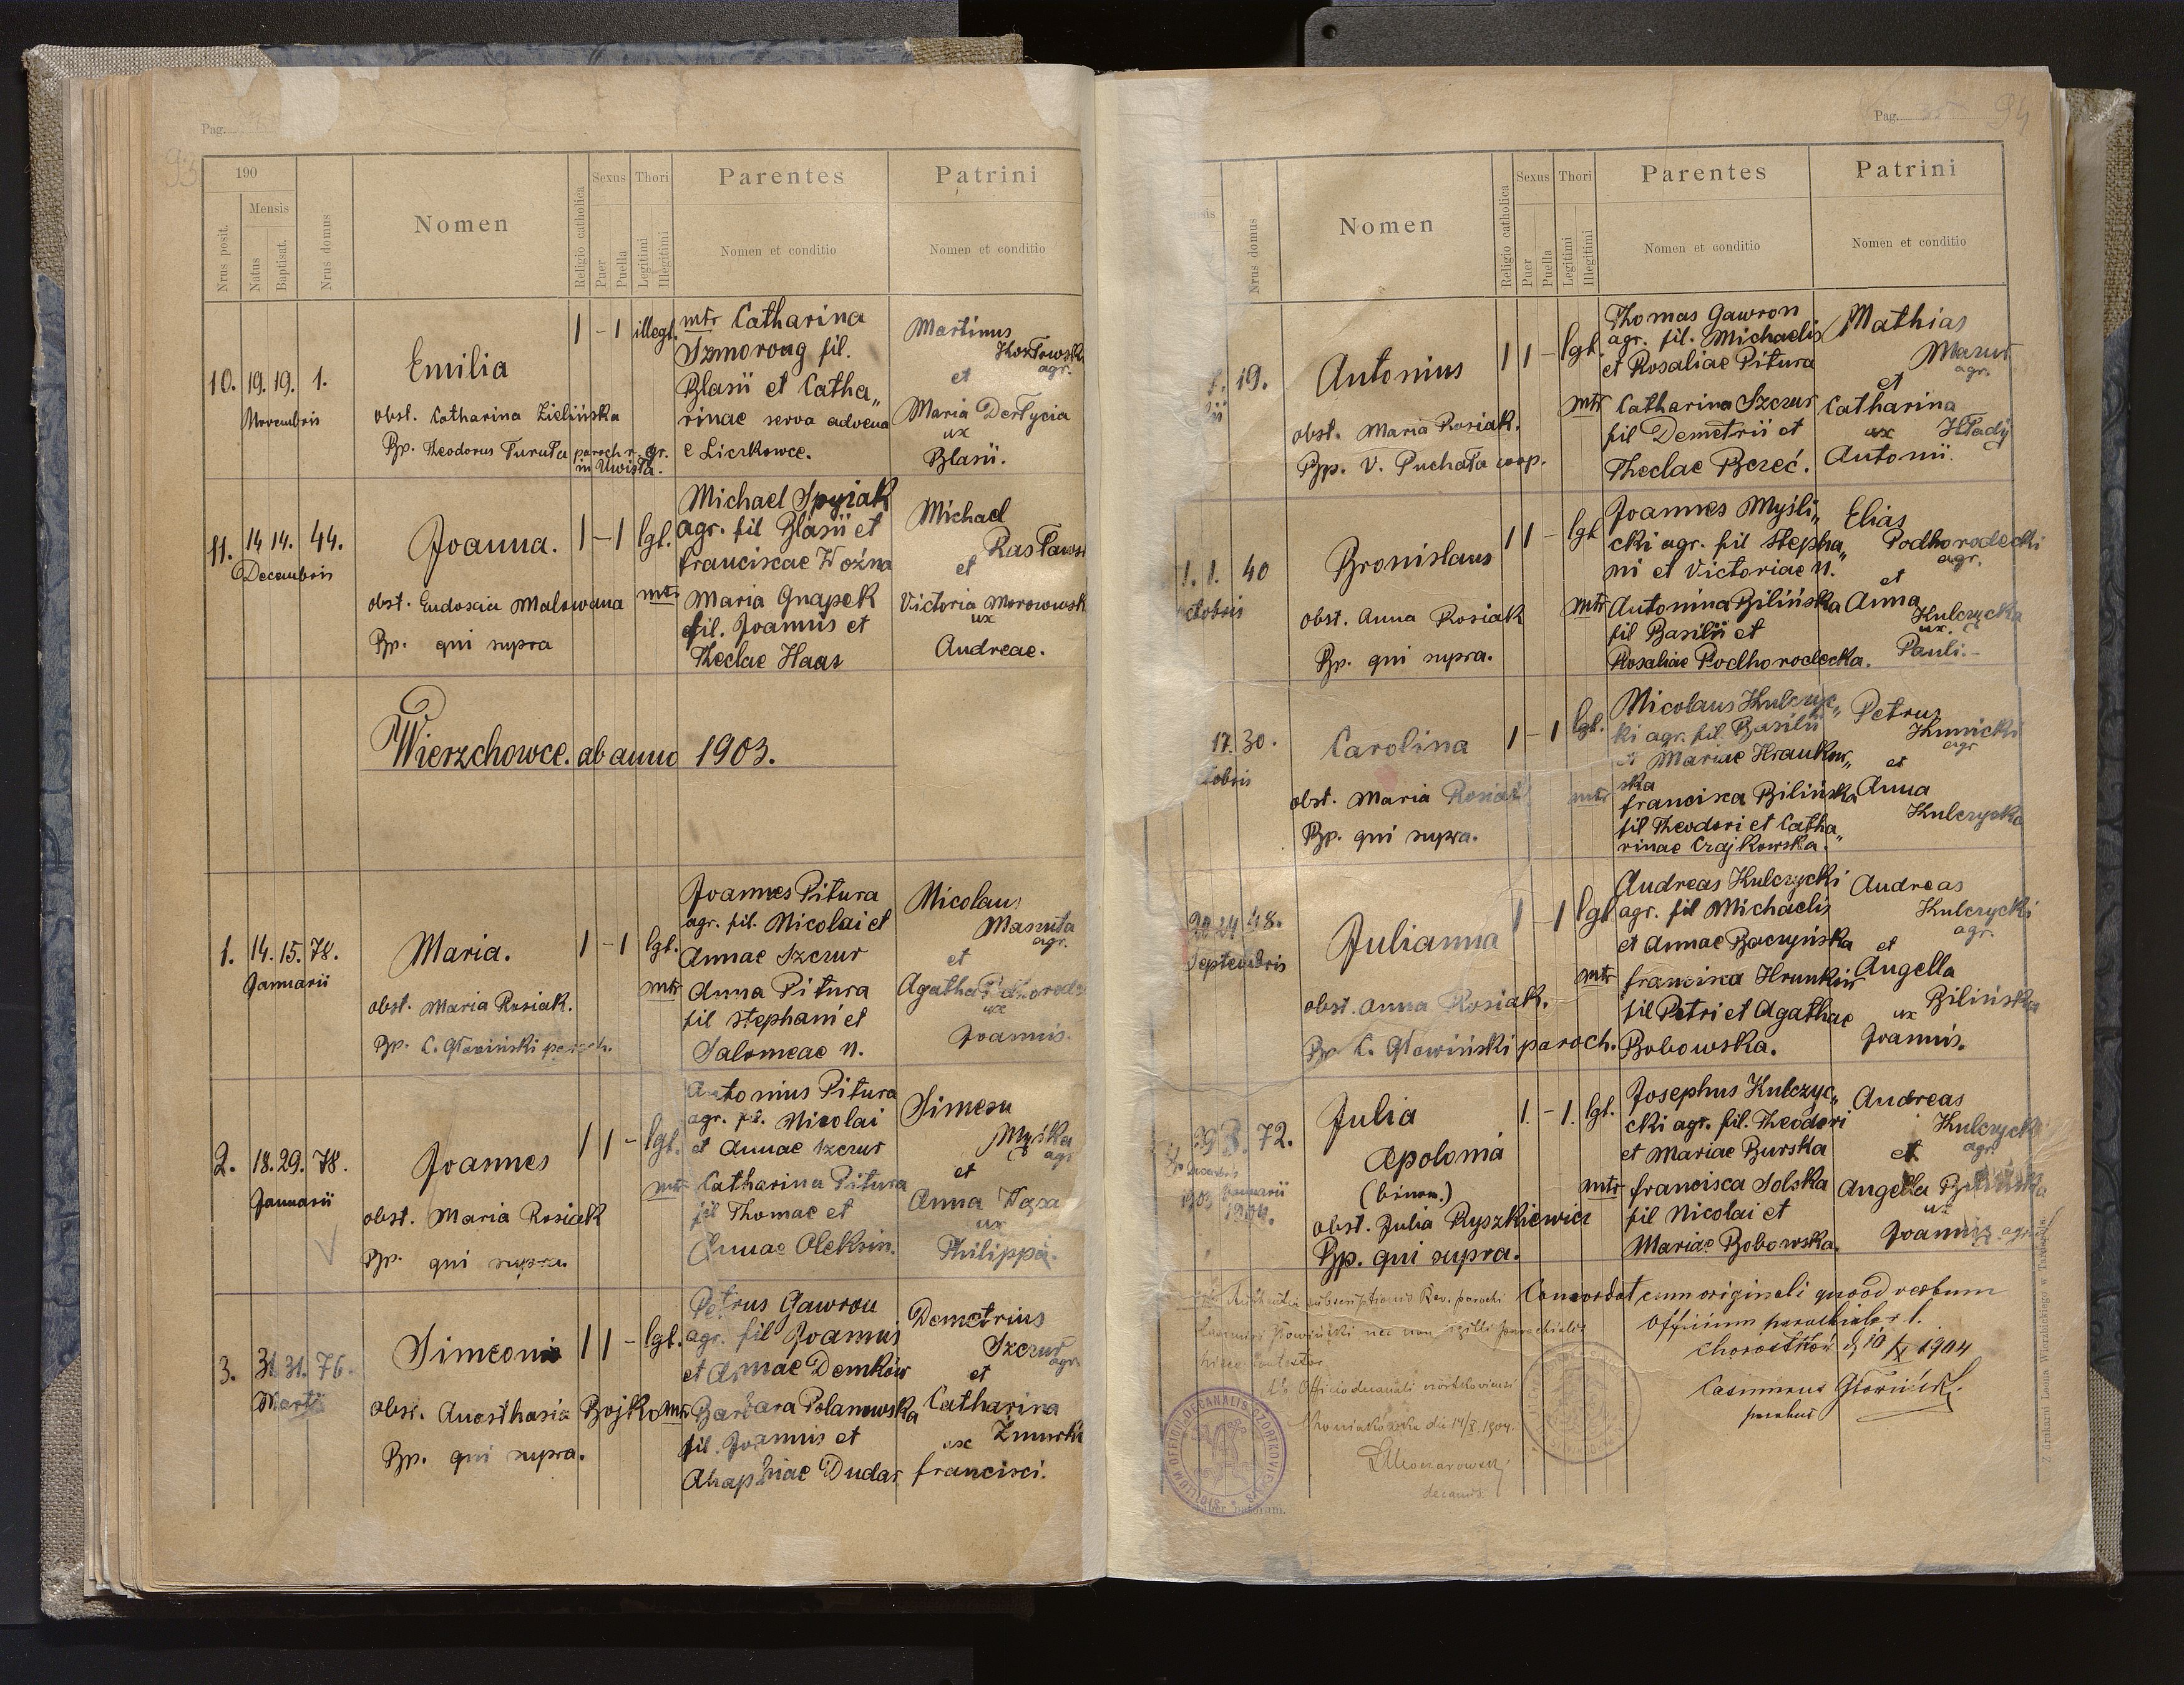 Pag.
93
190
Nrus posit.
Mensis
Natus
Baptisat.
Nrus domus
Nomen
Religio catholica
Sexus
Puer
Puella
Thori
Legitimi
Illegitimi
Parentes
Nomen et conditio
Patrini
Nomen et conditio
10. 19. 19. 1.
Novembris
Emilia
obst. Catharina Zielińska
Bp. Theodorus Turuła paroch r. gr.
in Uwisła.
1 - 1 illegt.
mtr Catharina
Szmoroug fil.
Blasii et Catha„
rinae serva advena
e Liczkowce.
Martinus
Kozłowsk
agr.
et
Maria Dertycia
ux
Blasii.
11. 14 14. 44.
Decembris
Joanna.
obst. Eudoscia Malowana
Bp. qui supra
1 - 1 lgt.
Michael Spyjak
agr. fil Blasii et
Franciscae Woźna
mtr Maria Gnapek
fil. Joannis et
Theclae Haas
Michael
Rasławs
et
Victoria Morowowsk
ux
Andreae.
Wierzchowce. ab anno 1903.
1. 14. 15. 78.
Januarii
Maria.
obst. Maria Rosiak.
Bp. C. Głowiński paroch.
1 - 1 lgt.
Joannes Pitura
agr. fil. Nicolai et
Annae Szczur
mtr Anna Pitura
fil Stephani et
Salomeae N.
Nicolaus
Masruta
agr.
et
Agatha
ux
Joannis.
2. 18. 29. 78.
Januarii
Joannes
obst. Maria Rosiak
Bp. qui supra
1 1 - lgt.
Antonius Pitura
agr. fil. Nicolai
et Annae Szczur
mtr Catharina Pitura
fil Thomae et
Annae Oleksin.
Simeon
Myśka
agr
et
Anna
ux
Philippi.
3. 31 31. 76.
Martii
Simeonis
obst. Anasthasia Bojko
Bp. qui supra.
1 1 - lgt.
Petrus Gawron
agr. fil Joannis
et Annae Demków
mtr Barbara Polanowska
fil. Joannis et
Ahaphiae Dudar
Demetrius
Szczur
agr.
et
Catharina
ux Żmurki
Francisci.
Pag. 94
Nrus domus
Nomen
Religio catholica
Sexus
Puer
Puella
Thori
Legitimi
Illegitimi
Parentes
Nomen et conditio
Patrini
Nomen et conditio
19.
Antonius
obst. Maria Rosiak.
Bp. V. Puchała coop.
1 1 - lgt.
Thomas Gawron
agr. fil. Michaelis
et Rosaliae Pitura
mtr Catharina Szczur
fil Demetrii et
Theclae Bereć.
Mathias
Mazur
agr.
et
Catharina
ux Hładÿ
Antonii.
1. 1. 40
ctobris
Bronislaus
obst. Anna Rosiak
Bp. qui supra.
1 1 - lgt
Joannes Myśli„
cki agr. fil Stepha„
ni et Victoriae N.
mtr Antonina Bilińska
fil Basilii et
Rosaliae Podhorodecka.
Elias
Podhorodecki
agr.
et
Anna
Kulczycka
ux.
Pauli.-
17. 30.
tobris
Carolina
obst. Maria Rosiak
Bp. qui supra.
1 - 1 lgt.
Nicolaus Kulczyc„
ki agr. fil. Basilii
et Mariae Hraukow„
ska
mtr Francisca Bilińska
fil Theodori et Catha„
rinae Czajkowska.
Petrus
Kunicki
agr
et
Anna
Kulczycka
22 24 48.
Septembris
Julianna
obst. Anna Rosiak.
Bp C. Głowiński paroch.
1 - 1 lgt
Andreas Kulczycki
agr. fil Michaelis
et Annae Baczyńska
mtr Francisca Hrunkiw
fil Petri et Agathae
Bobowska.
Andreas
Kulczycki
agr.
et
Angella
Bilińska
ux
Joannis.
72.
1903 Januarii
1904.
Julia
Apolonia
(binom.)
obst. Julia Ryszkiewicz
Bp. qui supra.
1. - 1. lgt.
Josephus Kulczyc„
cki agr. fil. Theodori
et Mariae Burska
mtr Francisca Solska
fil Nicolai et
Mariae Bobowska.
Andreas
Kulczycki
agr.
et
Angella Bilińska
ux
Joannis agr.
subscriptionis Rev. parochi
Casimiri Głowiński nec non sigilli parochialis
hisce contestor
Ab Officio decanali czortkoviensi
die 14/X 1904.
decanus.
Concordat cum originali quoad verbum
Officium parochiale r. l.
Chorostków d. 10/X 1904
Casimirus Głowiński
parochus
SIGILLUM OFFICII DECANALIS CZORTKOVIENSIS
Liber natorum.
Z drukarni Leona Wierzbickiego w Tarnopolu.